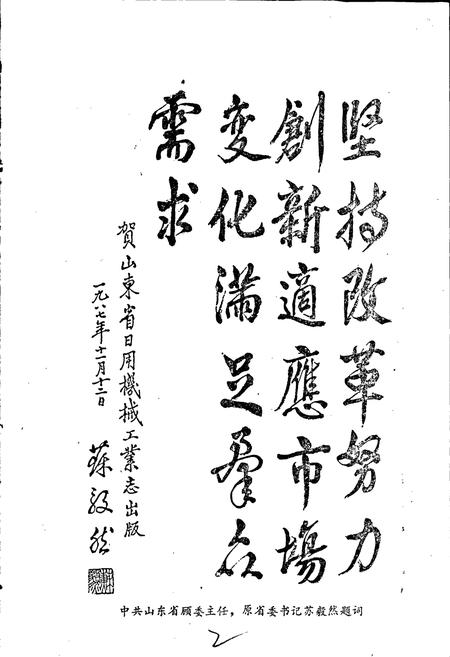 坚持改革努力
創新適應市場
变化滿足羣众
需求
賀山東省日用機械工業志出版
一九八七年十一月十二日
蘇毅然
中共山东省顾委主任，原省委书记苏毅然题词
2